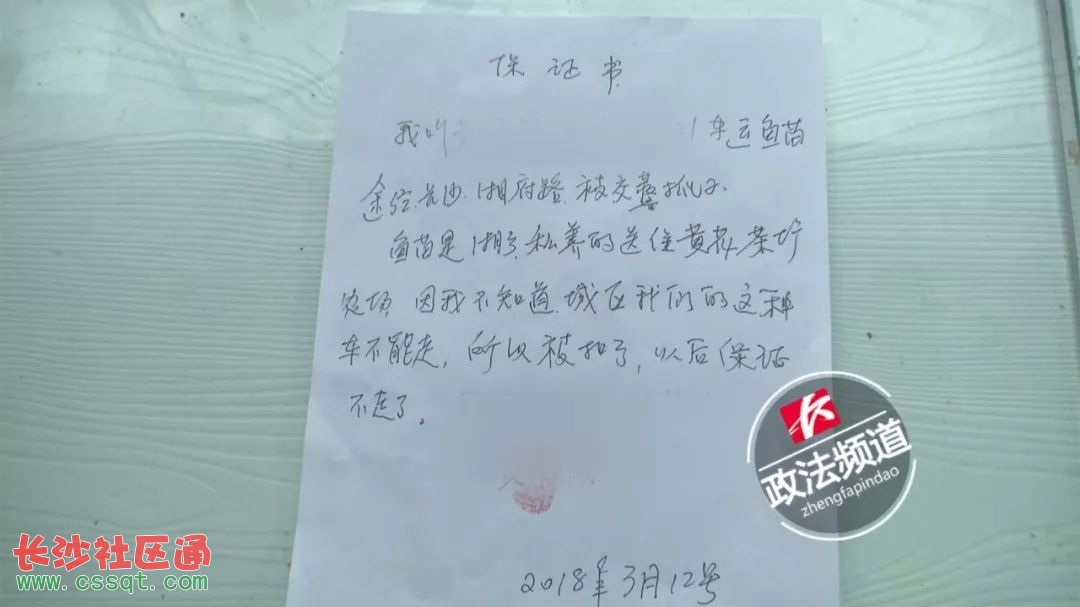 保证书
我叫 21车运鱼苗
途经长沙.湘府路.被交警抓了.
鱼苗是湘 私养的送往黄 茶
农场 因我不知道.城区我们的这种
车不能走,所以被扣了,以后保证
不走了。
2018年3月12号
政法频道
zhengfapindao
长沙社区通
www.cssqt.com